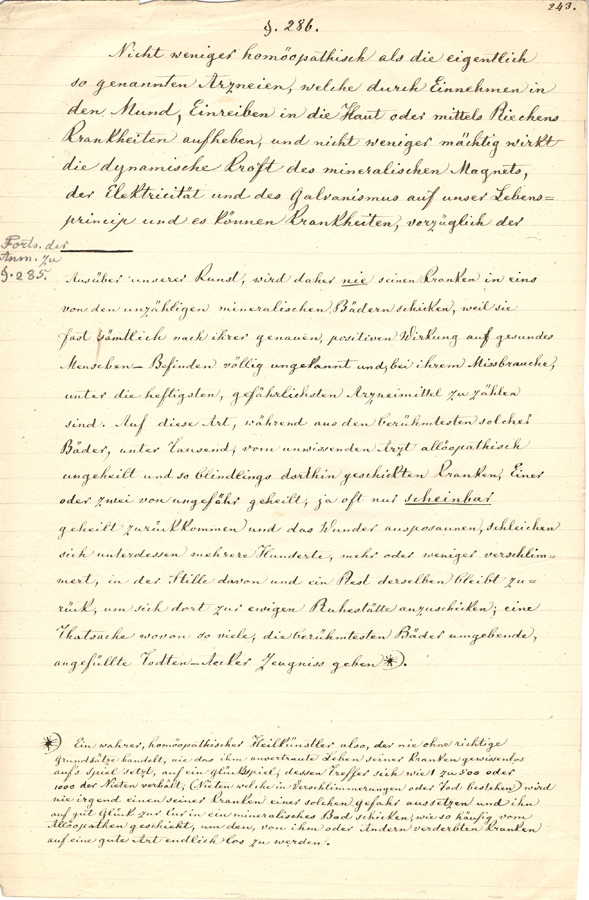 243.
§. 286.
Nicht weniger homöopathisch als die eigentlich
so genannten Arzneien, welche durch Einnehmen in
den Mund, Einreiben in die Haut oder mittels Riechens
Krankheiten aufheben, und nicht weniger mächtig wirkt
die dynamische Kraft des mineralischen Magnets,
der Elektricität und des Galvanismus auf unser Lebens=
princip und es können Krankheiten, vorzüglich der
Forts. der
Anm. zu
§. 285.
Ausüber unserer Kunst, wird daher nie seinen Kranken in eins
von den unzähligen mineralischen Bädern schicken, weil sie
fast sämtlich nach ihrer genauen, positiven Wirkung auf gesundes
Menschen–Befinden völlig ungekannt und, bei ihrem Missbrauche,
unter die heftigsten, gefährlichsten Arzneimittel zu zählen
sind. Auf diese Art, während aus den berühmtesten solcher
Bäder, unter Tausend, vom unwissenden Arzt allöopathisch
ungeheilt und so blindlings dorthin geschickten Kranken, Einer
oder zwei von ungefähr geheilt, ja oft nur scheinbar
geheilt zurückkommen und das Wunder ausposaunen, schleichen
sich unterdessen mehrere Hunderte, mehr oder weniger verschlim=
mert, in der Stille davon und ein Rest derselben bleibt zu=
rück, um sich dort zur ewigen Ruhestätte anzuschicken; eine
Thatsache wovon so viele, die berühmtesten Bäder umgebende,
angefüllte Todten–Aecker Zeugniss geben *).
*) Ein wahrer, homöopathischer Heilkünstler also, der nie ohne richtige
Grundsätze handelt, nie das ihm anvertraute Leben seiner Kranken gewissenlos
aufs Spiel setzt, auf ein Glückspiel, dessen Treffer sich wie 1 zu 500 oder
1000 der Nieten verhält, (Nieten welche in Verschlimmerungen oder Tod bestehen) wird
nie irgend einen seiner Kranken einer solchen Gefahr aussetzen und ihn
auf gut Glück zur Cur in ein mineralisches Bad schicken, wie so häufig vom
Allöopathen geschieht, um den, von ihm oder Andern verderbten Kranken
auf eine gute Art endlich los zu werden.